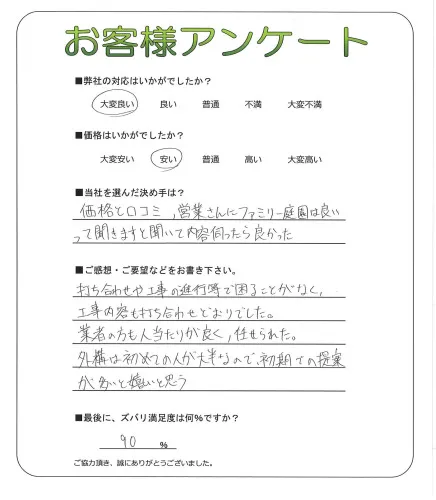 お客様アンケート
■弊社の対応はいかがでしたか?
大変良い 良い 普通 不満 大変不満
■価格はいかがでしたか?
大変安い 安い 普通 高い 大変高い
■当社を選んだ決め手は?
価格と口コミ,営業さんにファミリー庭園は良い
って聞きますと聞いて内容伺ったら良かった
■ご感想・ご要望などをお書き下さい。
打ち合わせや工事の進行等で困ることがなく,
工事内容も打ち合わせどおりでした。
業者の方も人当たりが良く,任せられた。
外構は初めての人が大半なので,初期での提案
が多いと嬉しいと思う
■最後に、ズバリ満足度は何%ですか?
90 %
ご協力頂き、誠にありがとうございました。